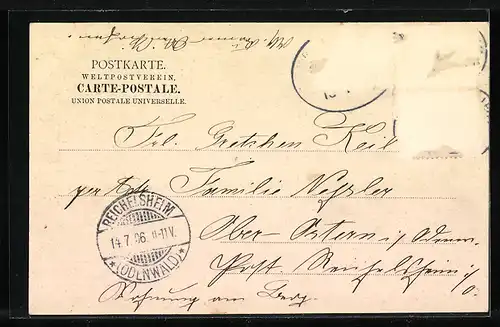 POSTKARTE.
WELTPOSTVEREIN.
CARTE-POSTALE.
UNION POSTALE UNIVERSELLE.
Frl. Gretchen Keil
per Adr. Familie Nessler
Ober-Ostern i/ Odenw.
Post Reichelsheim i/O.
Wohnung am Berg.
REICHELSHEIM
14.7.06. 11-12V.
* (ODENWALD) *